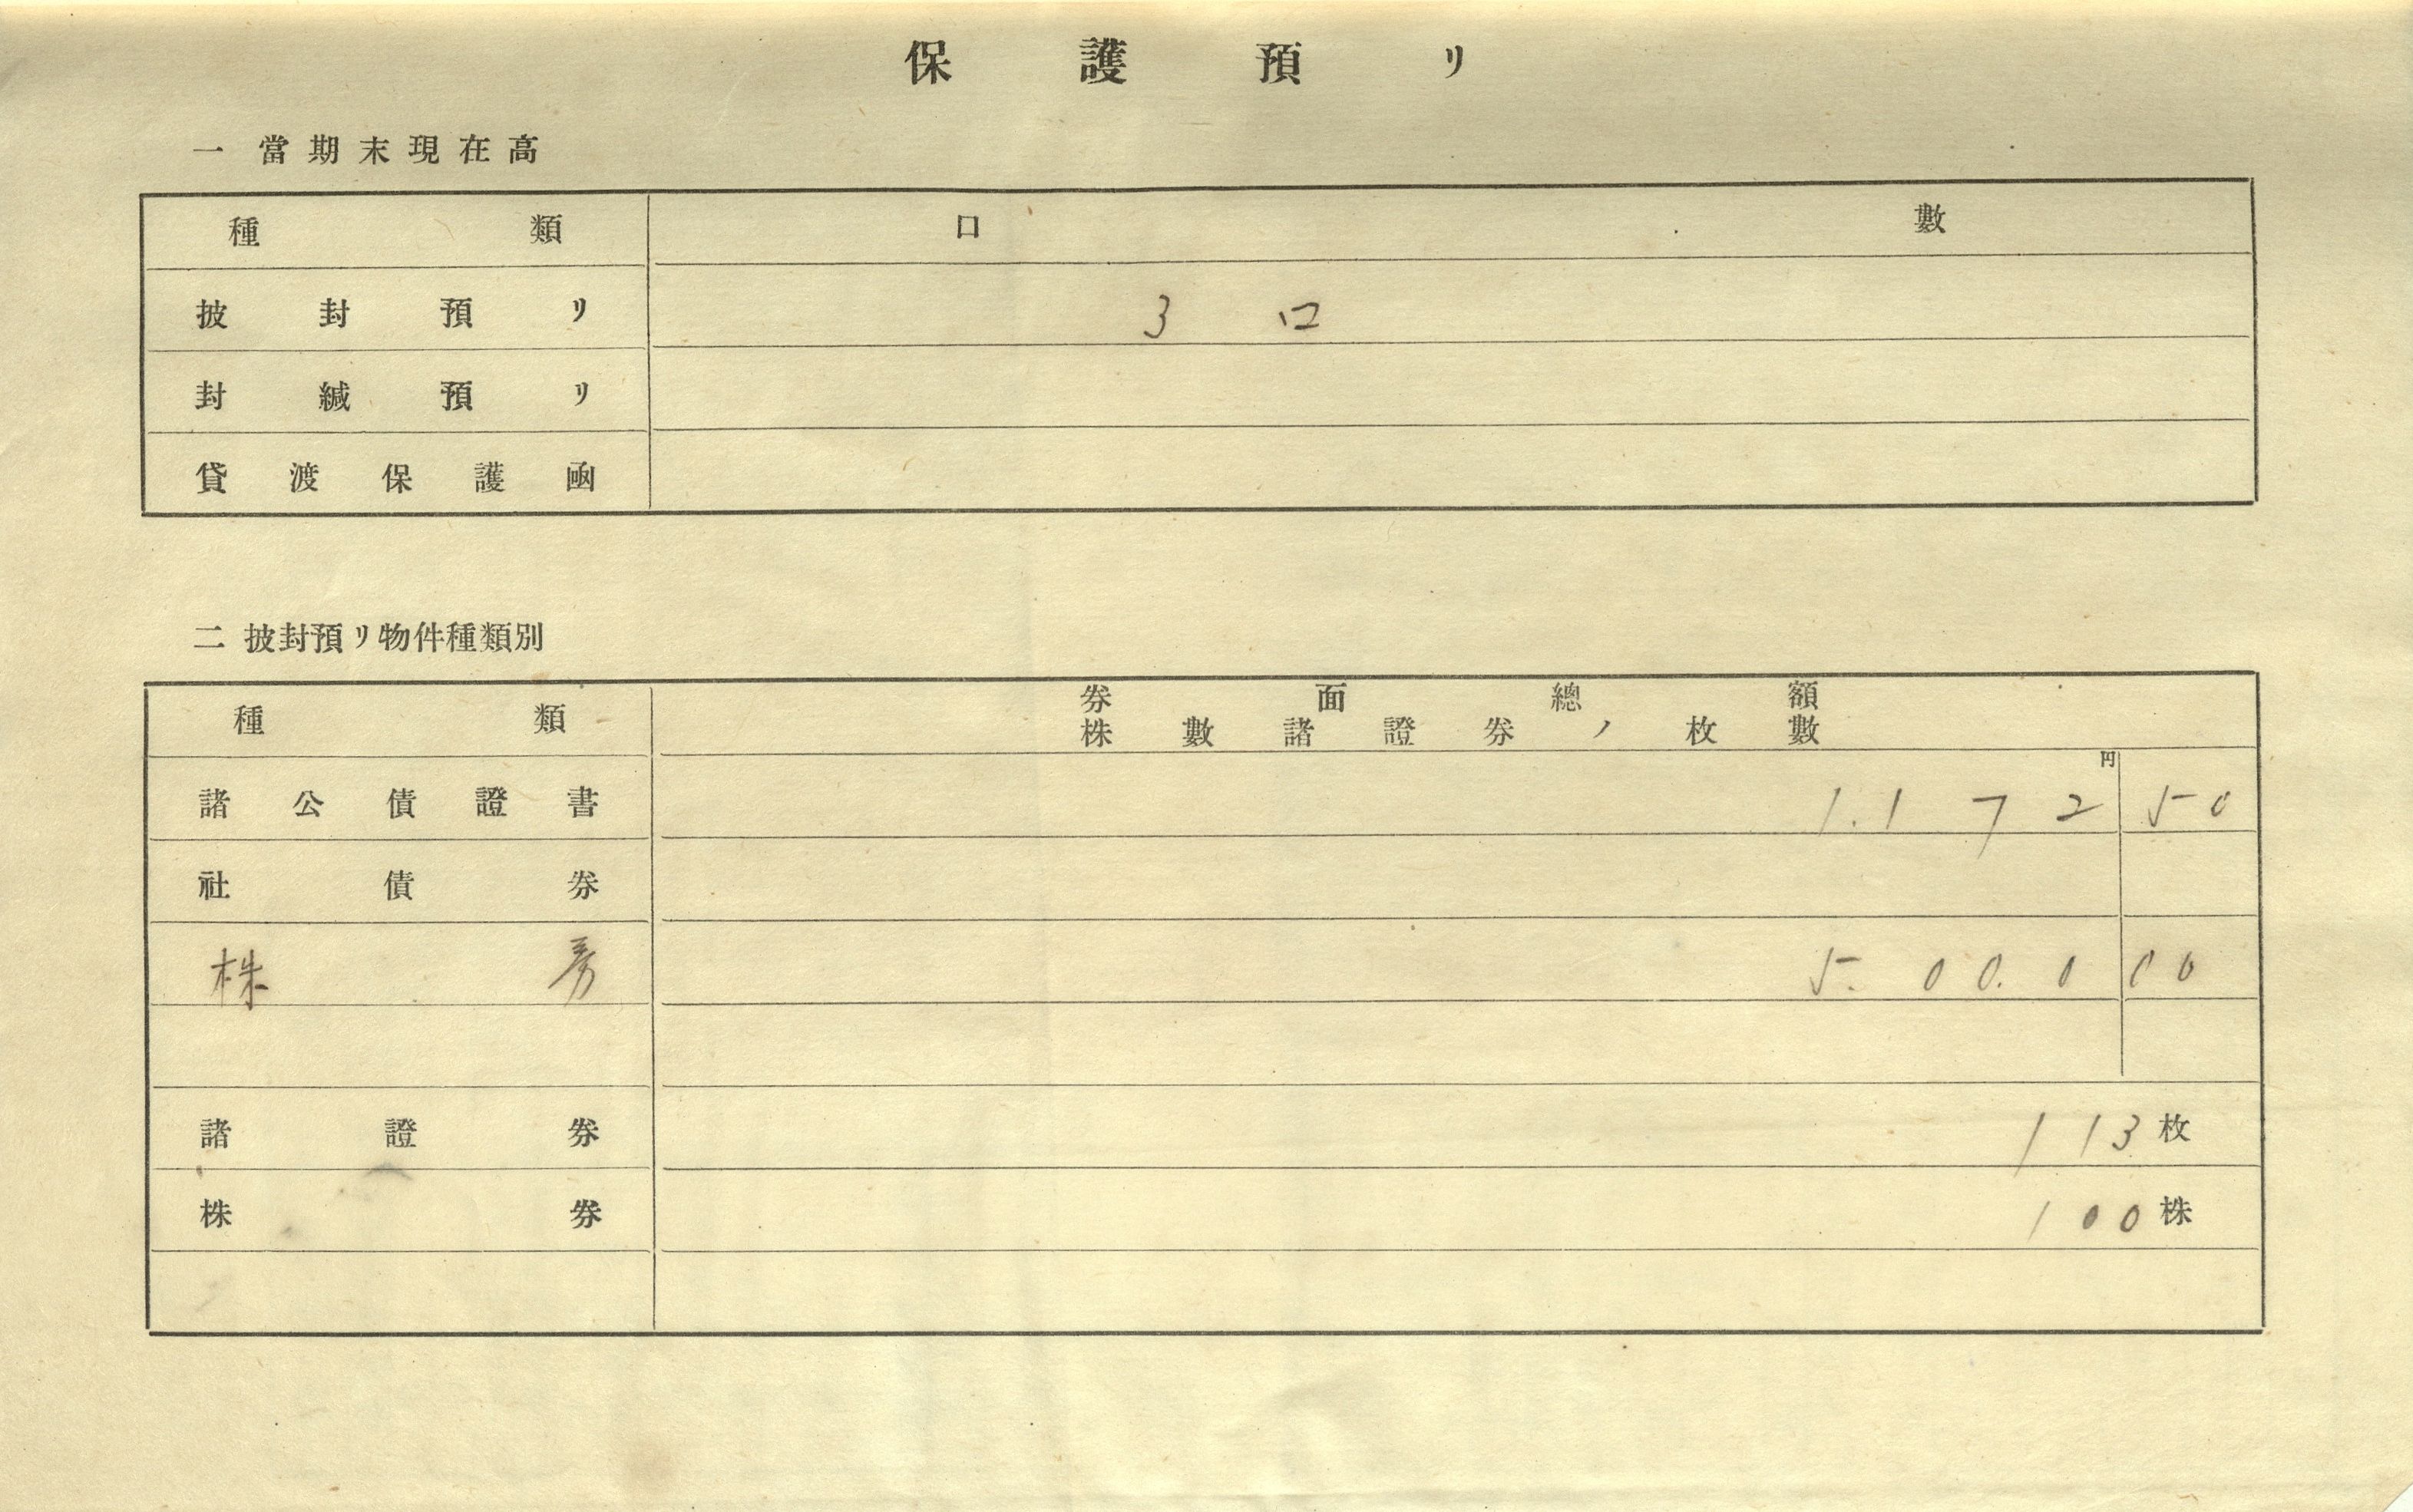 保護預リ
一 當期末現在高
種類 口數
披封預リ 3口
封緘預リ
貸渡保護凾
二 披封預リ物件種類別
種類 券面總額
株數諸證券ノ枚數
円
諸公債證書 1.172 50
社債券
株券 5.00.0 00
諸證券 113枚
株券 100株